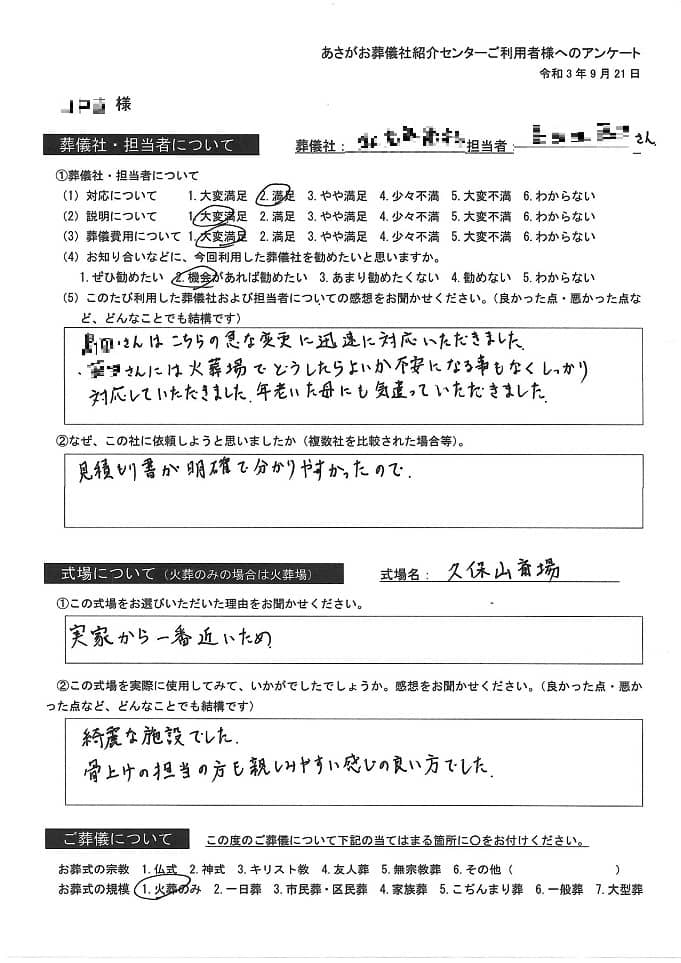 あさがお葬儀社紹介センターご利用者様へのアンケート
令和3年9月21日
様
葬儀社・担当者について
葬儀社： 担当者： さん
①葬儀社・担当者について
(1) 対応について 1.大変満足 2.満足 3.やや満足 4.少々不満 5.大変不満 6.わからない
(2) 説明について 1.大変満足 2.満足 3.やや満足 4.少々不満 5.大変不満 6.わからない
(3) 葬儀費用について 1.大変満足 2.満足 3.やや満足 4.少々不満 5.大変不満 6.わからない
(4) お知り合いなどに、今回利用した葬儀社を勧めたいと思いますか。
1.ぜひ勧めたい 2.機会があれば勧めたい 3.あまり勧めたくない 4.勧めない 5.わからない
(5) このたび利用した葬儀社および担当者についての感想をお聞かせください。（良かった点・悪かった点な
ど、どんなことでも結構です）
さんはこちらの急な変更に迅速に対応いただきました.
さんには火葬場でどうしたらよいか不安になる事もなくしっかり
対応していただきました.年老いた母にも気遣っていただきました.
②なぜ、この社に依頼しようと思いましたか（複数社を比較された場合等）。
見積もり書が明確で分かりやすかったので.
式場について（火葬のみの場合は火葬場）
式場名： 久保山斎場
①この式場をお選びいただいた理由をお聞かせください。
実家から一番近いため
②この式場を実際に使用してみて、いかがでしたでしょうか。感想をお聞かせください。（良かった点・悪か
った点など、どんなことでも結構です）
綺麗な施設でした.
骨上げの担当の方も親しみやすい感じの良い方でした.
ご葬儀について
この度のご葬儀について下記の当てはまる箇所に〇をお付けください。
お葬式の宗教 1.仏式 2.神式 3.キリスト教 4.友人葬 5.無宗教葬 6.その他（ ）
お葬式の規模 1.火葬のみ 2.一日葬 3.市民葬・区民葬 4.家族葬 5.こぢんまり葬 6.一般葬 7.大型葬